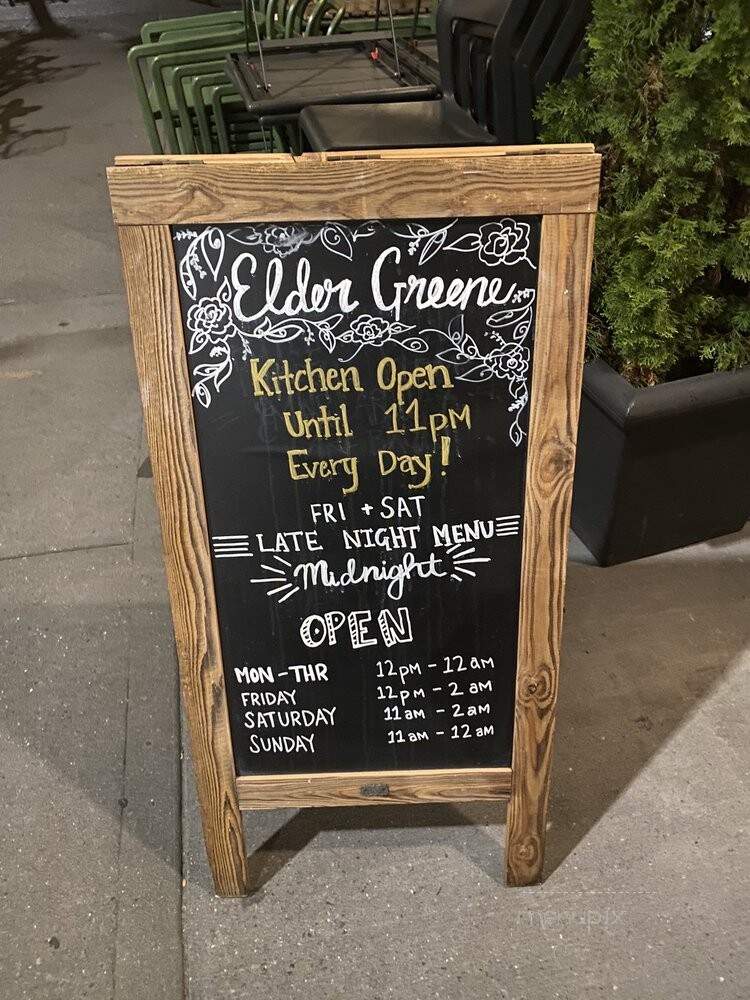 Elder Greene
Kitchen Open
Until 11pm
Every Day!
FRI + SAT
LATE NIGHT MENU
Midnight
OPEN
MON-THR 12pm - 12am
FRIDAY 12pm - 2am
SATURDAY 11am - 2am
SUNDAY 11am - 12am
menupix